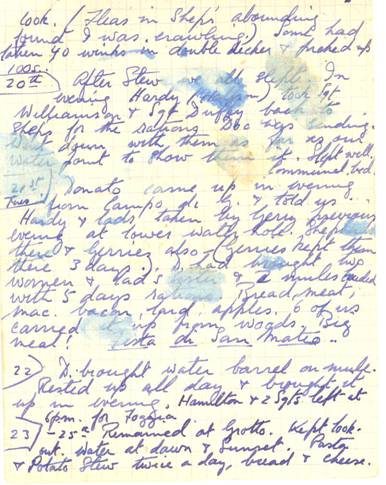 look. (Fleas in Sheps' abounding
found I was crawling.) Some had
taken 40 winks in double decker & pushed up
100s.
20th) After Stew we all slept. In
evening Hardy ( ) took Sgt
Williamson & Sgt Duffy back to
Sheps for the rations Dbo was sending.
Went down with them as far as our
water point to show them it. Slept well.
Communal bed.
21st Donato came up in evening
Tues from Campo di G. & told us
Hardy & lads taken by Gerry previous
evening at lower water hole. Sheps
there & Gerries also (Gerries kept them
there 3 days). D. had brought two
women & lad & 2 mules loaded
with 5 days rations. Bread, meat,
mac. bacon, lard, apples. 6 of us
carried it up from woods. Big
meal! Festa di San Mateo..
22) D. brought water barrel on mule.
Rested up all day & brought it
up in evening. Hamilton & 2 Sgts left at
6pm. for Foggia
23) -25th Remained at Grotto. Kept look-
out. Water at dawn & sunset. Pasta
& Potato Stew twice a day, bread & cheese.